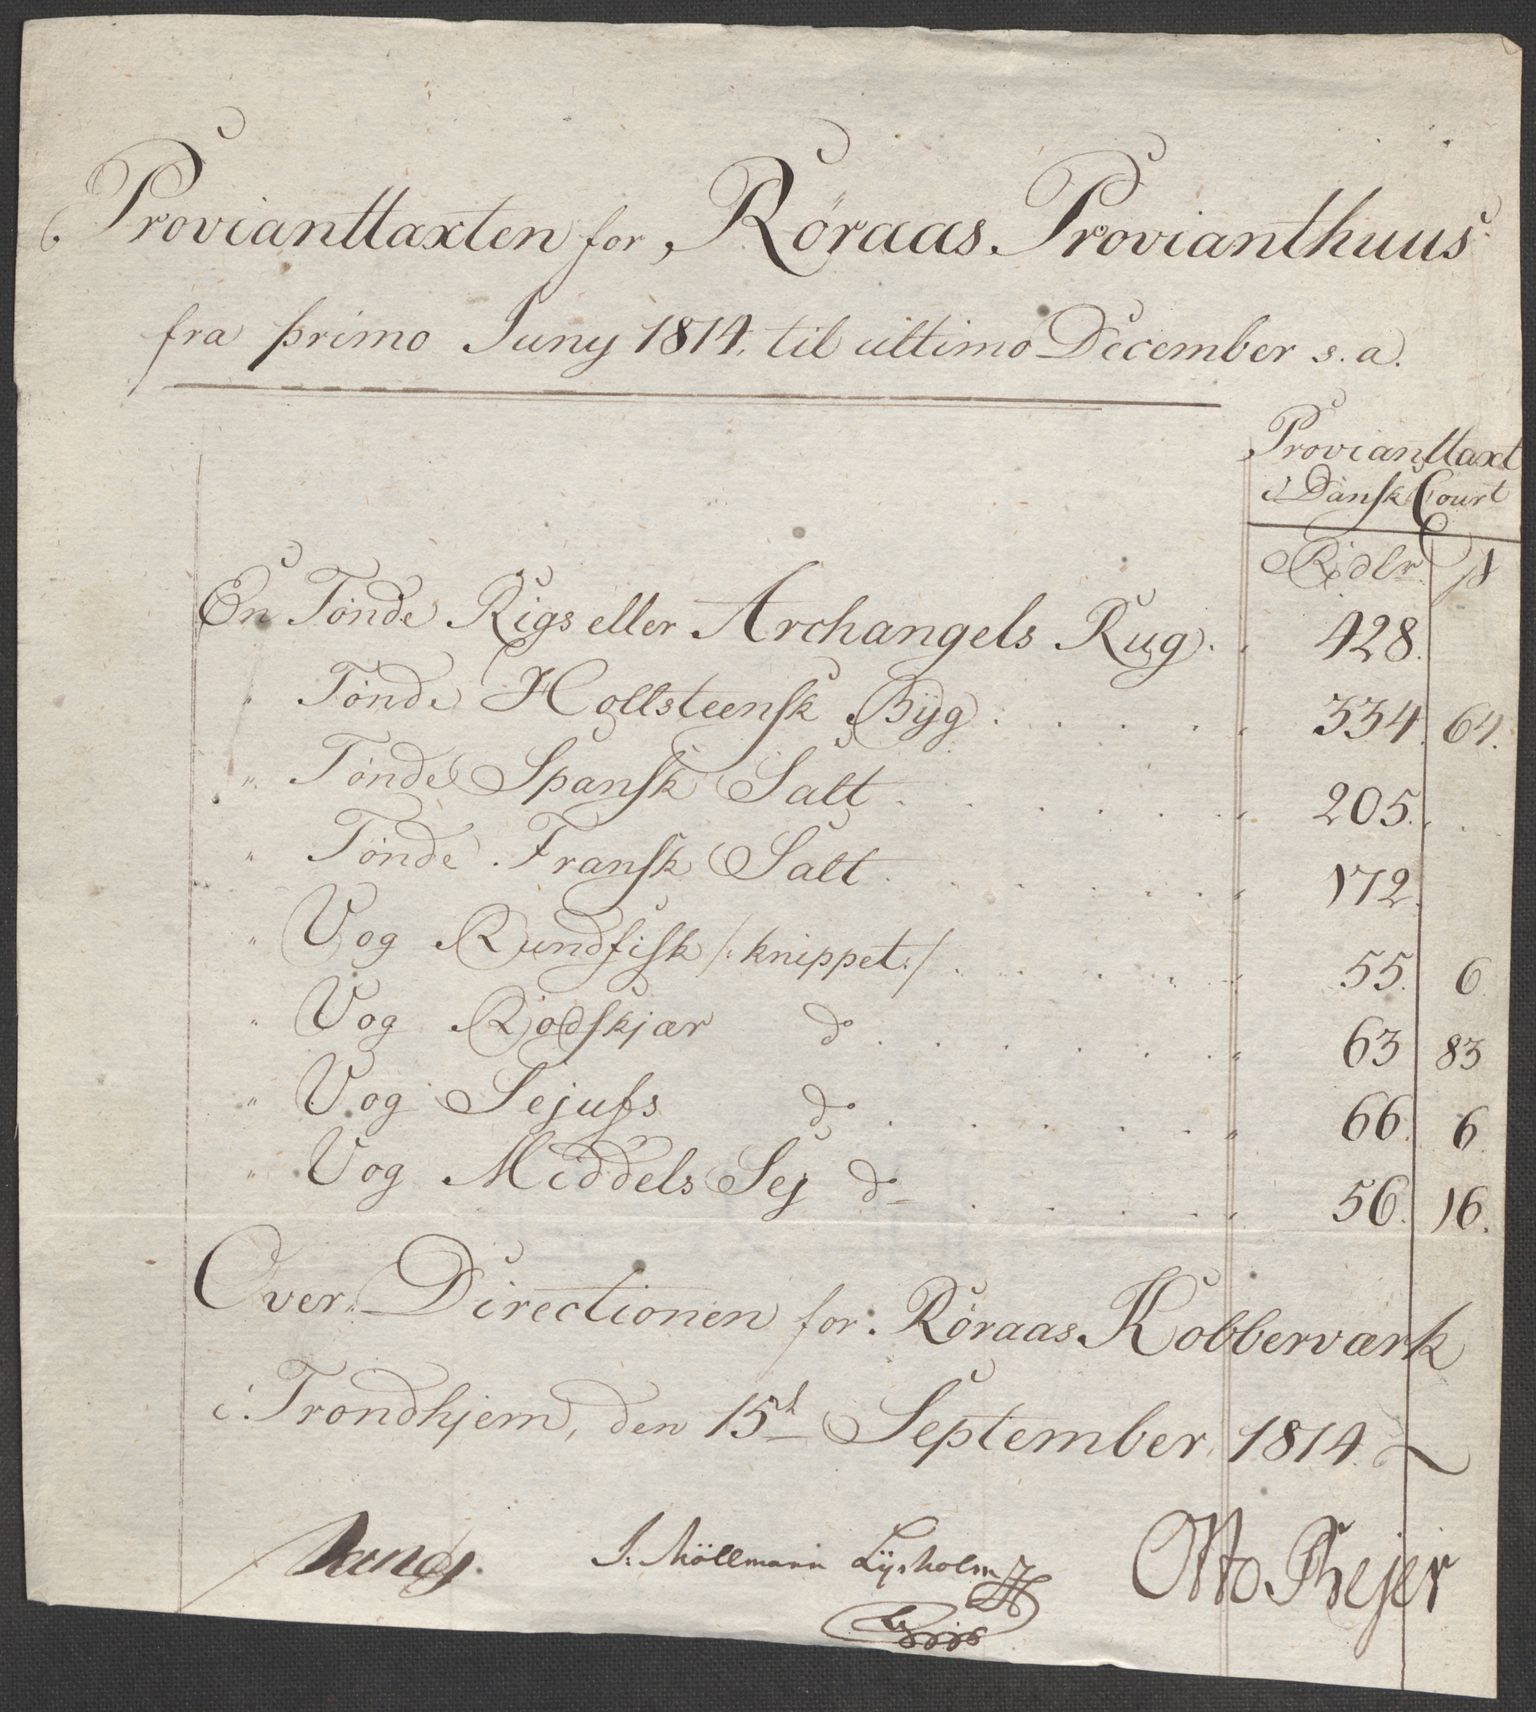 Provianttaxten for Röraas Provianthuus
fra primo Juny 1814. til ultimo December s. a.
Provianttaxt
i Dansk Court
Rdlr. ß
En Tönde Rigs eller Archangels Rug. 428.
" Tönde Hollsteensk Byg 334. 64.
" Tönde Spansk Salt 205.
" Tönde Fransk Salt 172.
" Vog Rundfisk /: knippet :/ 55. 6
" Vog Rodskjær do 63 83
" Vog Sejufs do 66. 6
" Vog Middels Sej do 56. 16.
Over Directionen for Röraas Kobberværk
i Trondhjem, den 15d September 1814.
J. Möllmann Lysholm Otto Thejer